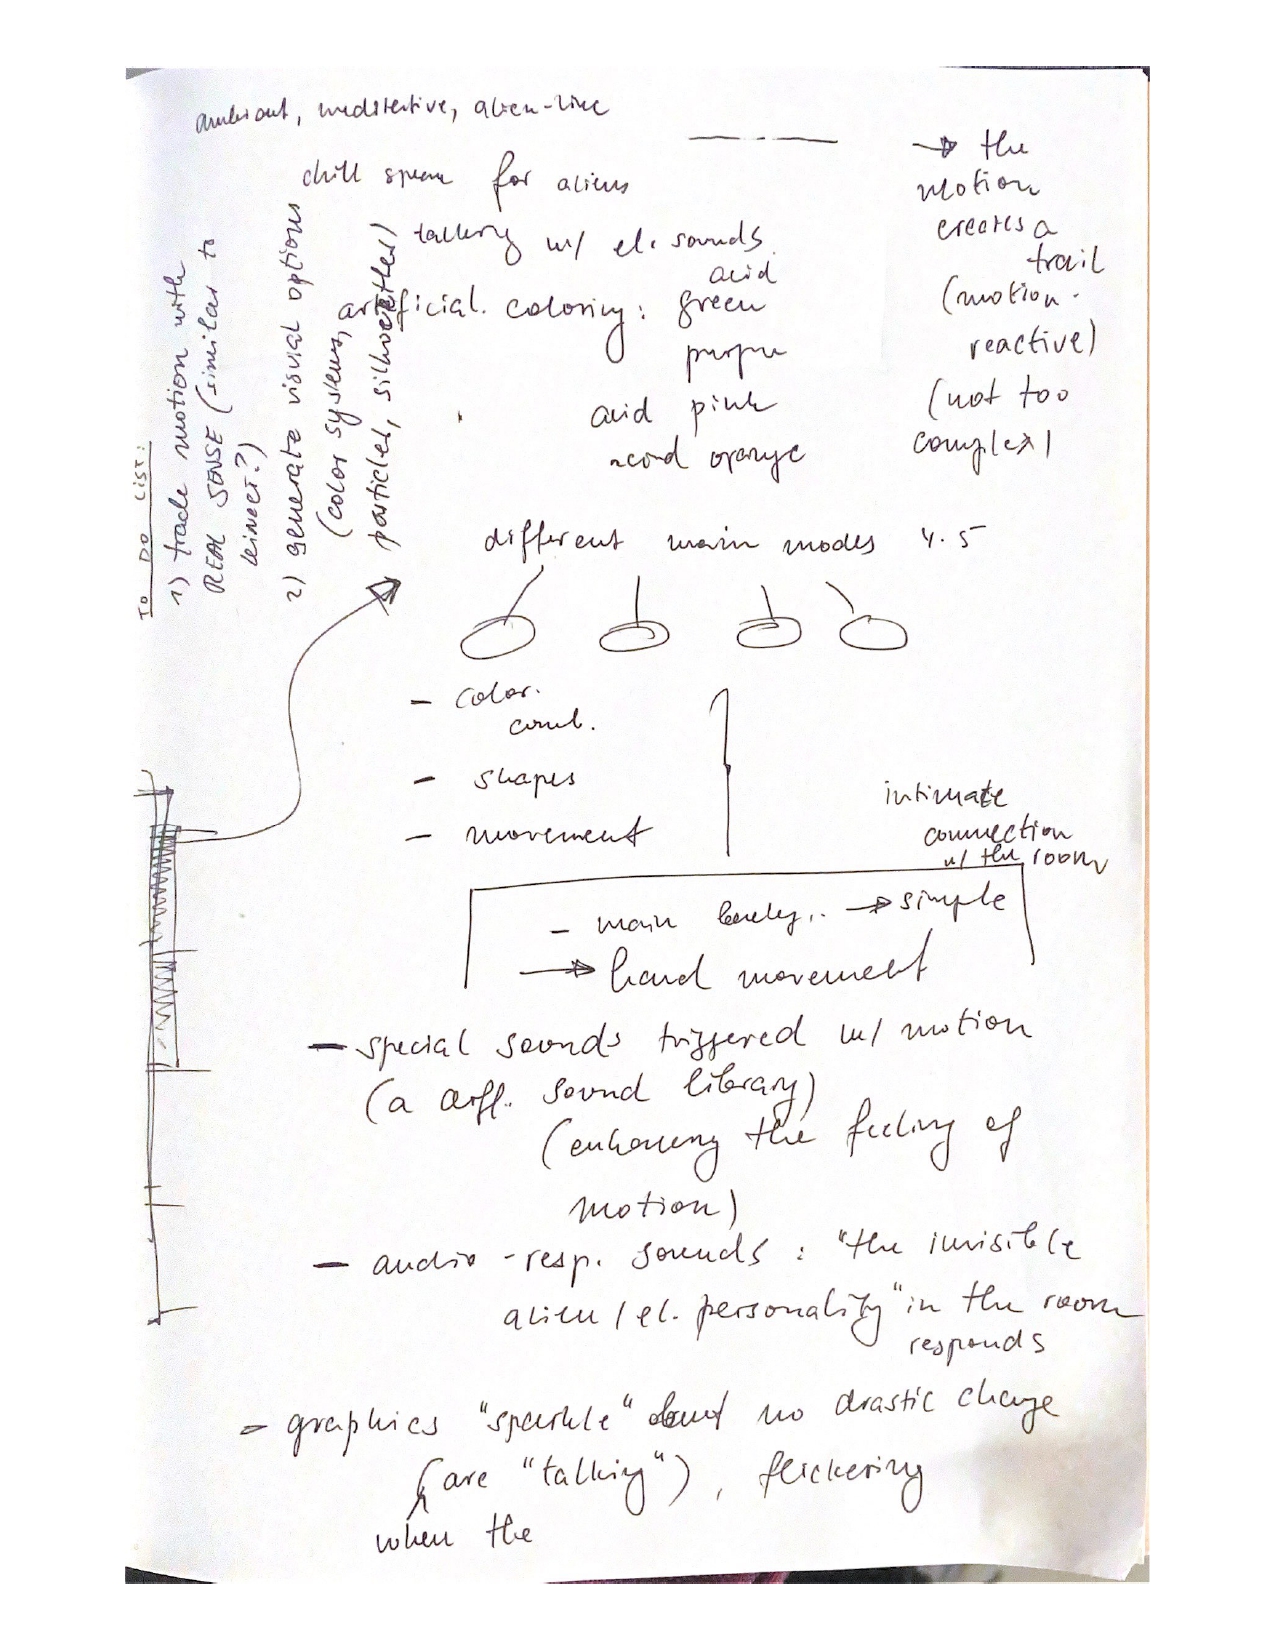 ambient, meditative, alien-like
chill space for aliens
talking w/ el. sounds
artificial. coloring: acid green
purple
acid pink
acid orange
→ the
motion
creates a
trail
(motion-
reactive)
(not too
complex)
TO DO LIST:
1) track motion with
REAL SENSE (similar to
kinect?)
2) generate visual options
(color systems,
particles, silhouettes)
different main modes 4.5
- color.
comb.
- shapes
- movement
intimate
connection
w/ the room
- main → simple
→ hand movement
- special sounds triggered w/ motion
(a diff. sound library)
(enhancing the feeling of
motion)
- audio-resp. sounds : "the invisible
alien / el. personality" in the room
responds
- graphics "sparkle" but no drastic change
(are "talking"), flickering
when the